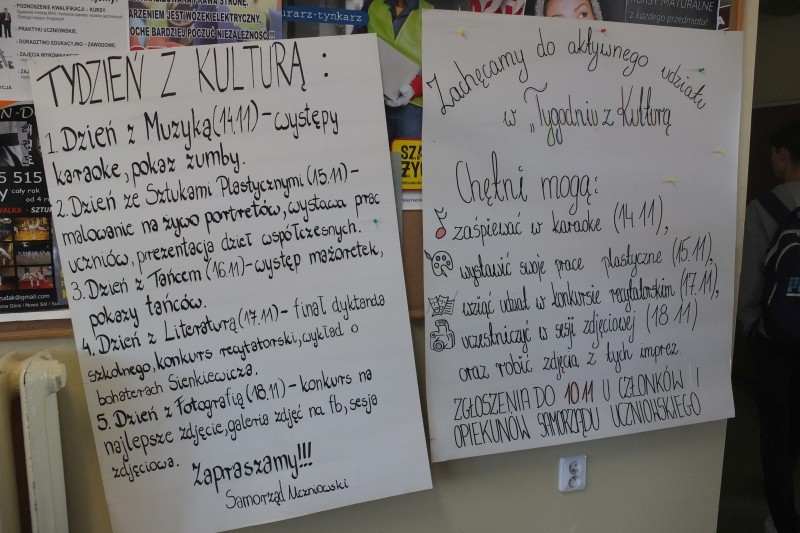 PODNOSZENIE KWALIFIKACJI - KURSY
PRAKTYKI UCZNIOWSKIE
DORADZTWO EDUKACYJNO - ZAWODOWE
ARZENIEM JEST WÓZEK ELEKTRYCZNY.
OCHE BARDZIEJ POCZUĆ NIEZALEŻNOŚĆ!!!
urarz-tynkarz
z każdego przedmiotu!
5 515
cały rok
zudak@gmail.com
TYDZIEŃ Z KULTURĄ :
1. Dzień z Muzyką (14.11) - występy
karaoke, pokaz zumby.
2. Dzień ze Sztukami Plastycznymi (15.11) -
malowanie na żywo portretów, wystawa prac
uczniów, prezentacja dzieł współczesnych.
3. Dzień z Tańcem (16.11) - występ mażoretek,
pokazy tańców.
4. Dzień z Literaturą (17.11) - finał dyktanda
szkolnego, konkurs recytatorski, wykład o
bohaterach Sienkiewicza.
5. Dzień z Fotografią (18.11) - konkurs na
najlepsze zdjęcie, galeria zdjęć na fb, sesja
zdjęciowa.
Zapraszamy!!!
Samorząd Uczniowski
Zachęcamy do aktywnego udziału
w „Tygodniu z Kulturą
Chętni mogą:
zaśpiewać w karaoke (14 11),
wystawić swoje prace plastyczne (15.11),
wziąć udział w konkursie recytatorskim (17.11),
uczestniczyć w sesji zdjęciowej (18 11)
oraz robić zdjęcia z tych imprez.
ZGŁOSZENIA DO 10.11 U CZŁONKÓW I
OPIEKUNÓW SAMORZĄDU UCZNIOWSKIEGO